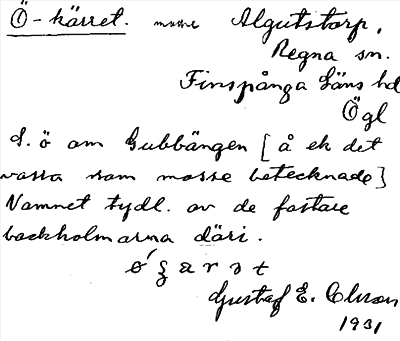 Ö-kärret. mosse Algutstorp,
Regna sn.
Finspånga läns hd
Ögl
S. ö om Gubbängen [å ek det
vassa som mosse betecknade]
Namnet tydl. av de fastare
backholmarna däri.
Gustaf E. Olsson
1931